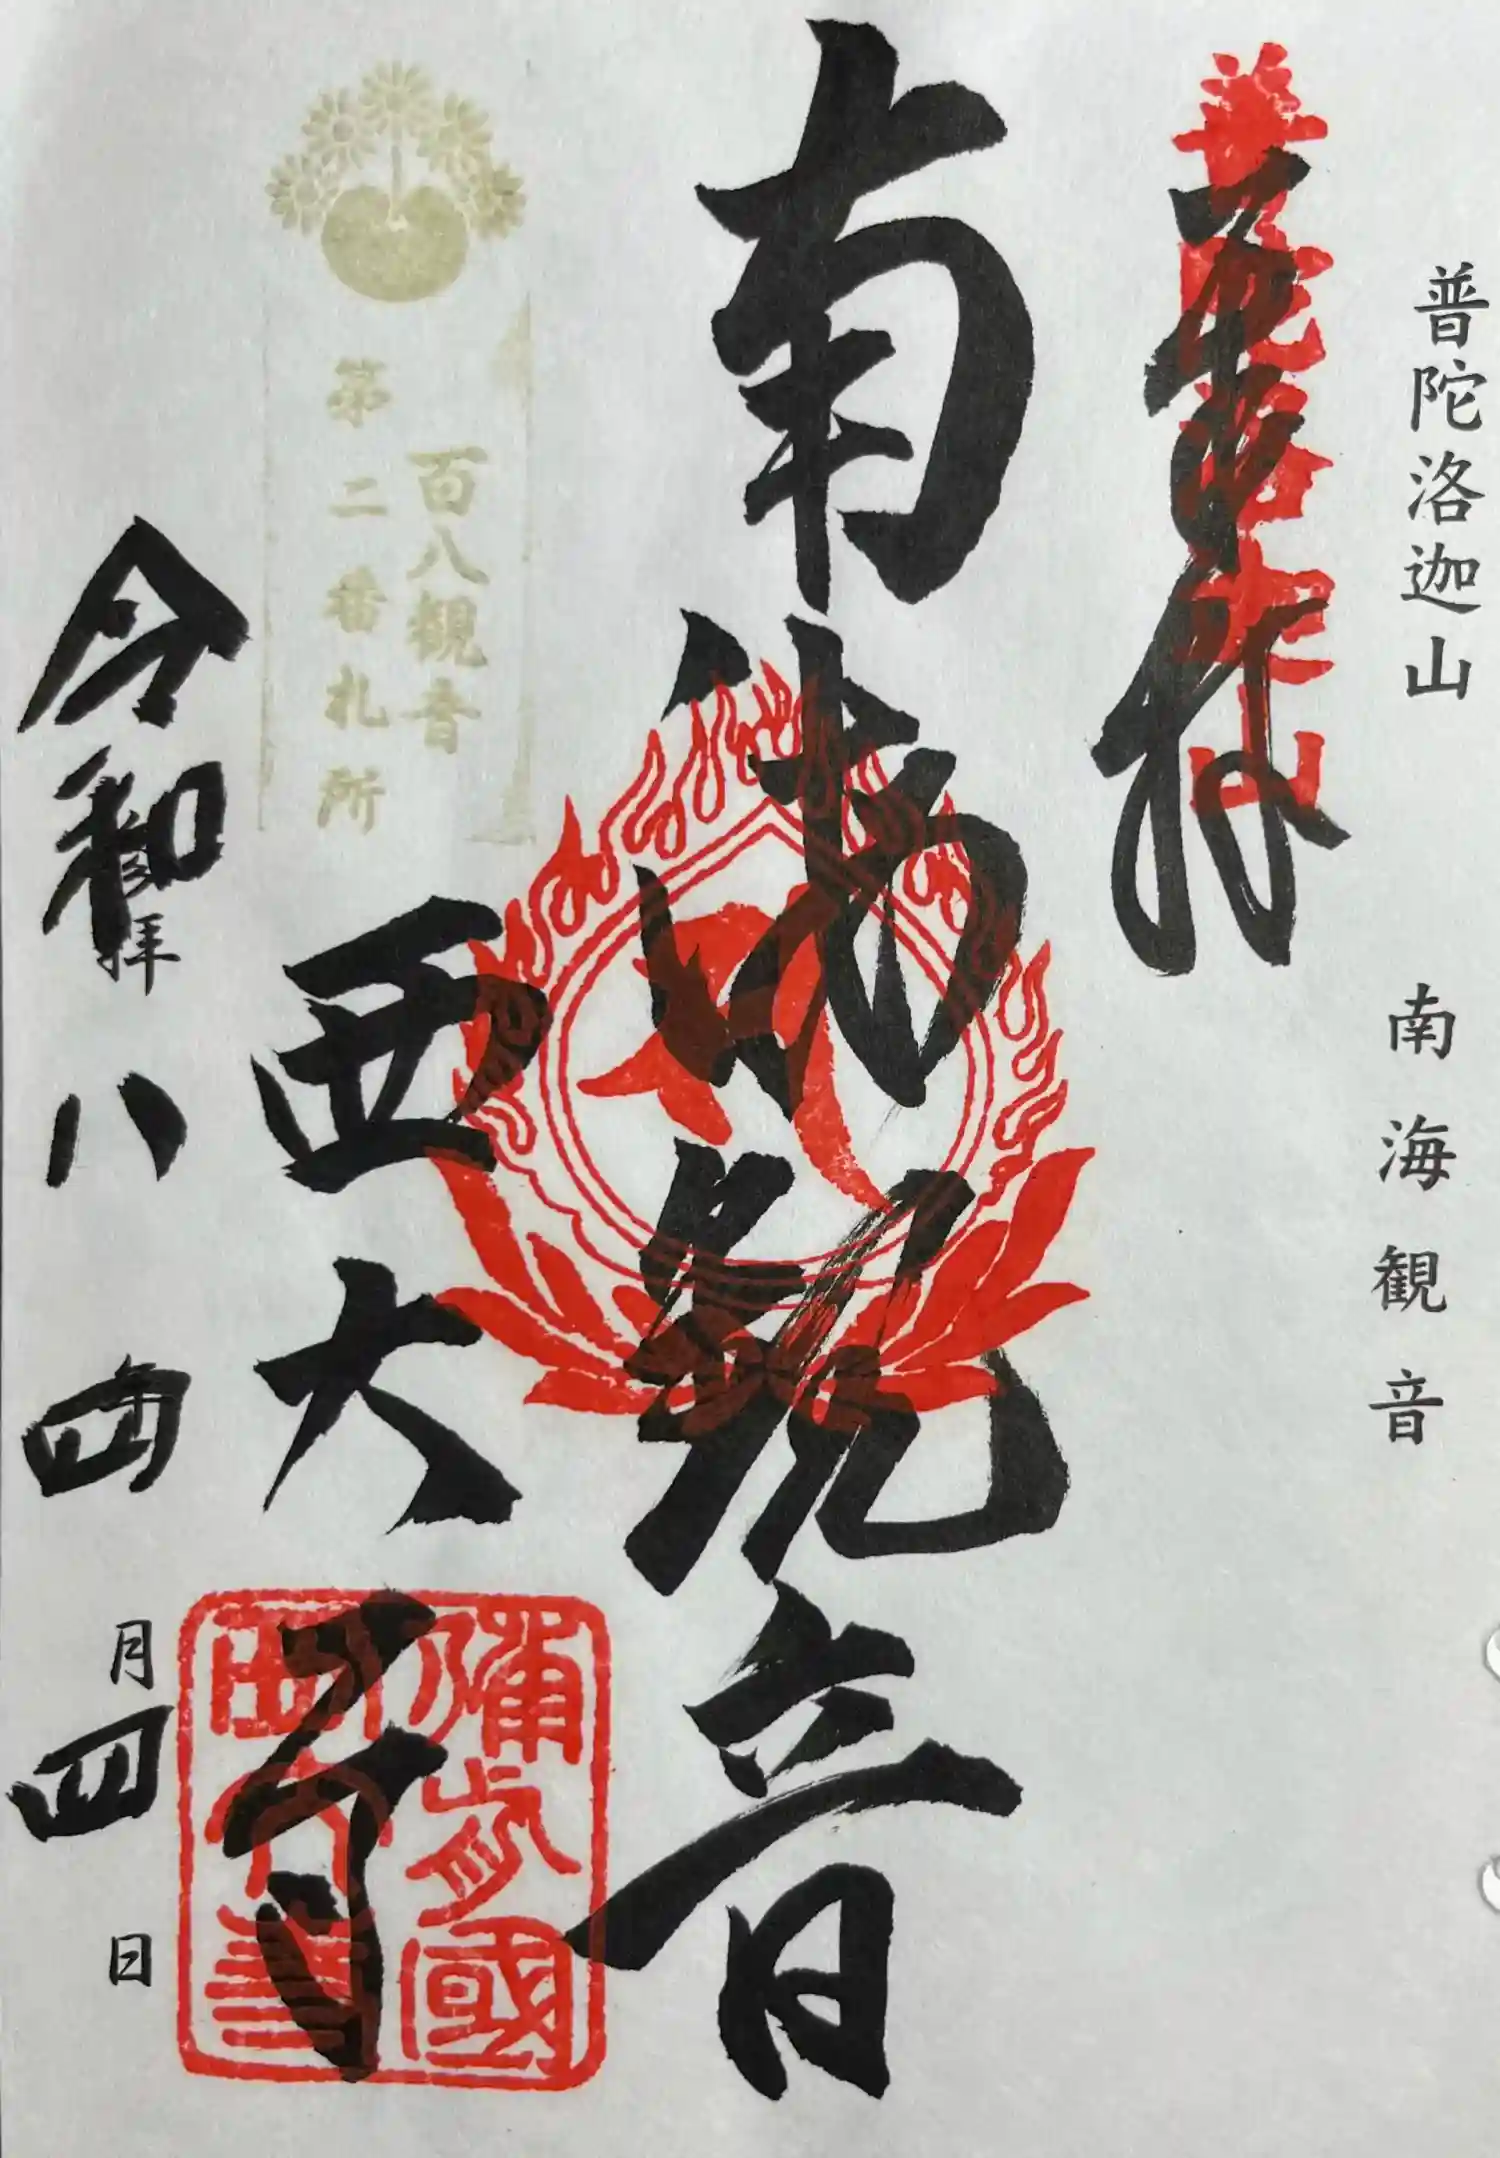 普陀洛迦山 南海観音
奉拝
普陀洛迦山
南海観音
百八観音
第二番札所
西大寺
備前國
西大寺
令和八年四月四日
拝